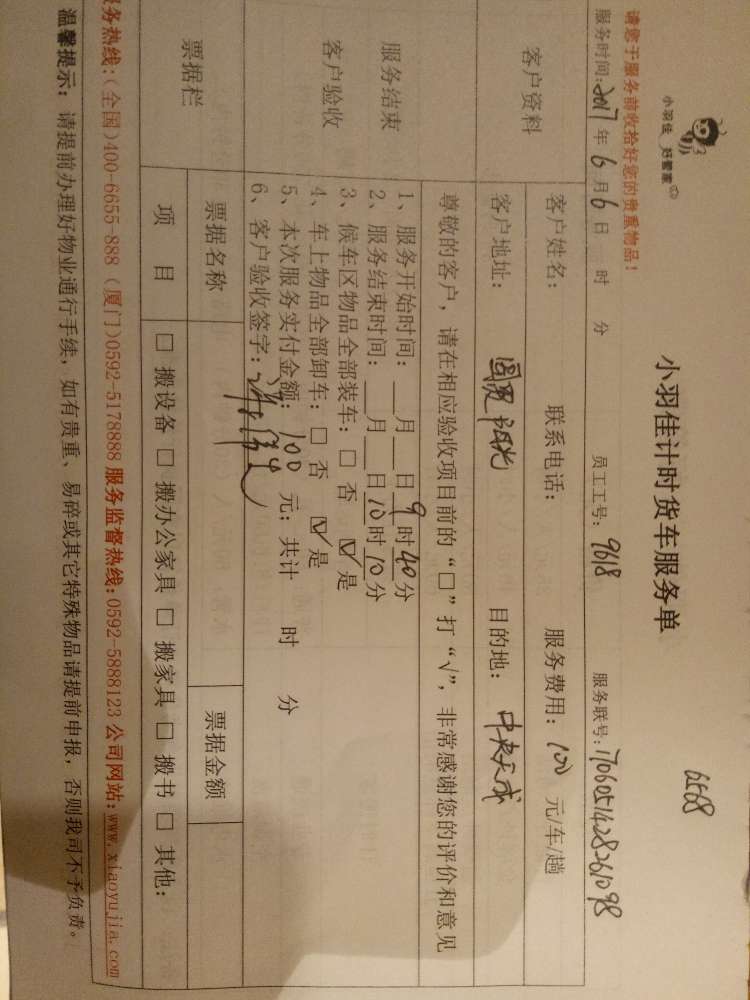 6568
小羽佳 好管家
小羽佳计时货车服务单
请您于服务前收拾好您的贵重物品！
服务时间:2017年6月6日 时 分 员工工号:9618 服务联号:1706051428261098
客户资料
客户姓名: 联系电话: 服务费用:100 元/车/趟
客户地址: 目的地:中央天成
服务结束
客户验收
尊敬的客户，请在相应验收项目前的“□”打“√”，非常感谢您的评价和意见
1、服务开始时间：__月__日9时40分
2、服务结束时间：__月__日10时10分
3、候车区物品全部装车：□ 否 ☑ 是
4、车上物品全部卸车：□ 否 ☑ 是
5、本次服务实付金额：100 元；共计 时 分
6、客户验收签字：
票据栏
票据名称 票据金额
项 目 □ 搬设备 □ 搬办公家具 □ 搬家具 □ 搬书 □ 其他:
务热线:(全国)400-6655-888 (厦门)0592-5178888 服务监督热线:0592-5888123 公司网站:www.xiaoyujia.com
温馨提示: 请提前办理好物业通行手续，如有贵重、易碎或其它特殊物品请提前申报，否则我司不予负责。